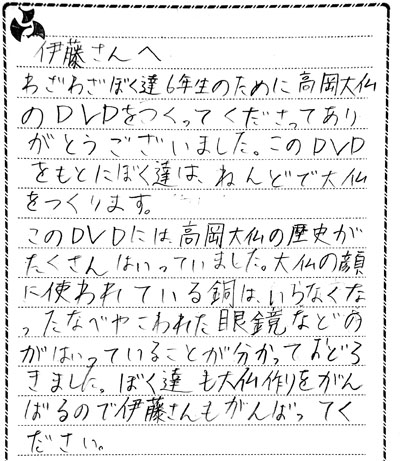 伊藤さんへ
わざわざぼく達6年生のために高岡大仏
のDVDをつくってくださってあり
がとうございました。このDVD
をもとにぼく達は、ねんどで大仏
をつくります。
このDVDには、高岡大仏の歴史が
たくさんはいっていました。大仏の顔
に使われている銅は、いらなくな
ったなべやこわれた眼鏡などの
がはいっていることが分かっておどろ
きました。ぼく達も大仏作りをがん
ばるので伊藤さんもがんばってく
ださい。